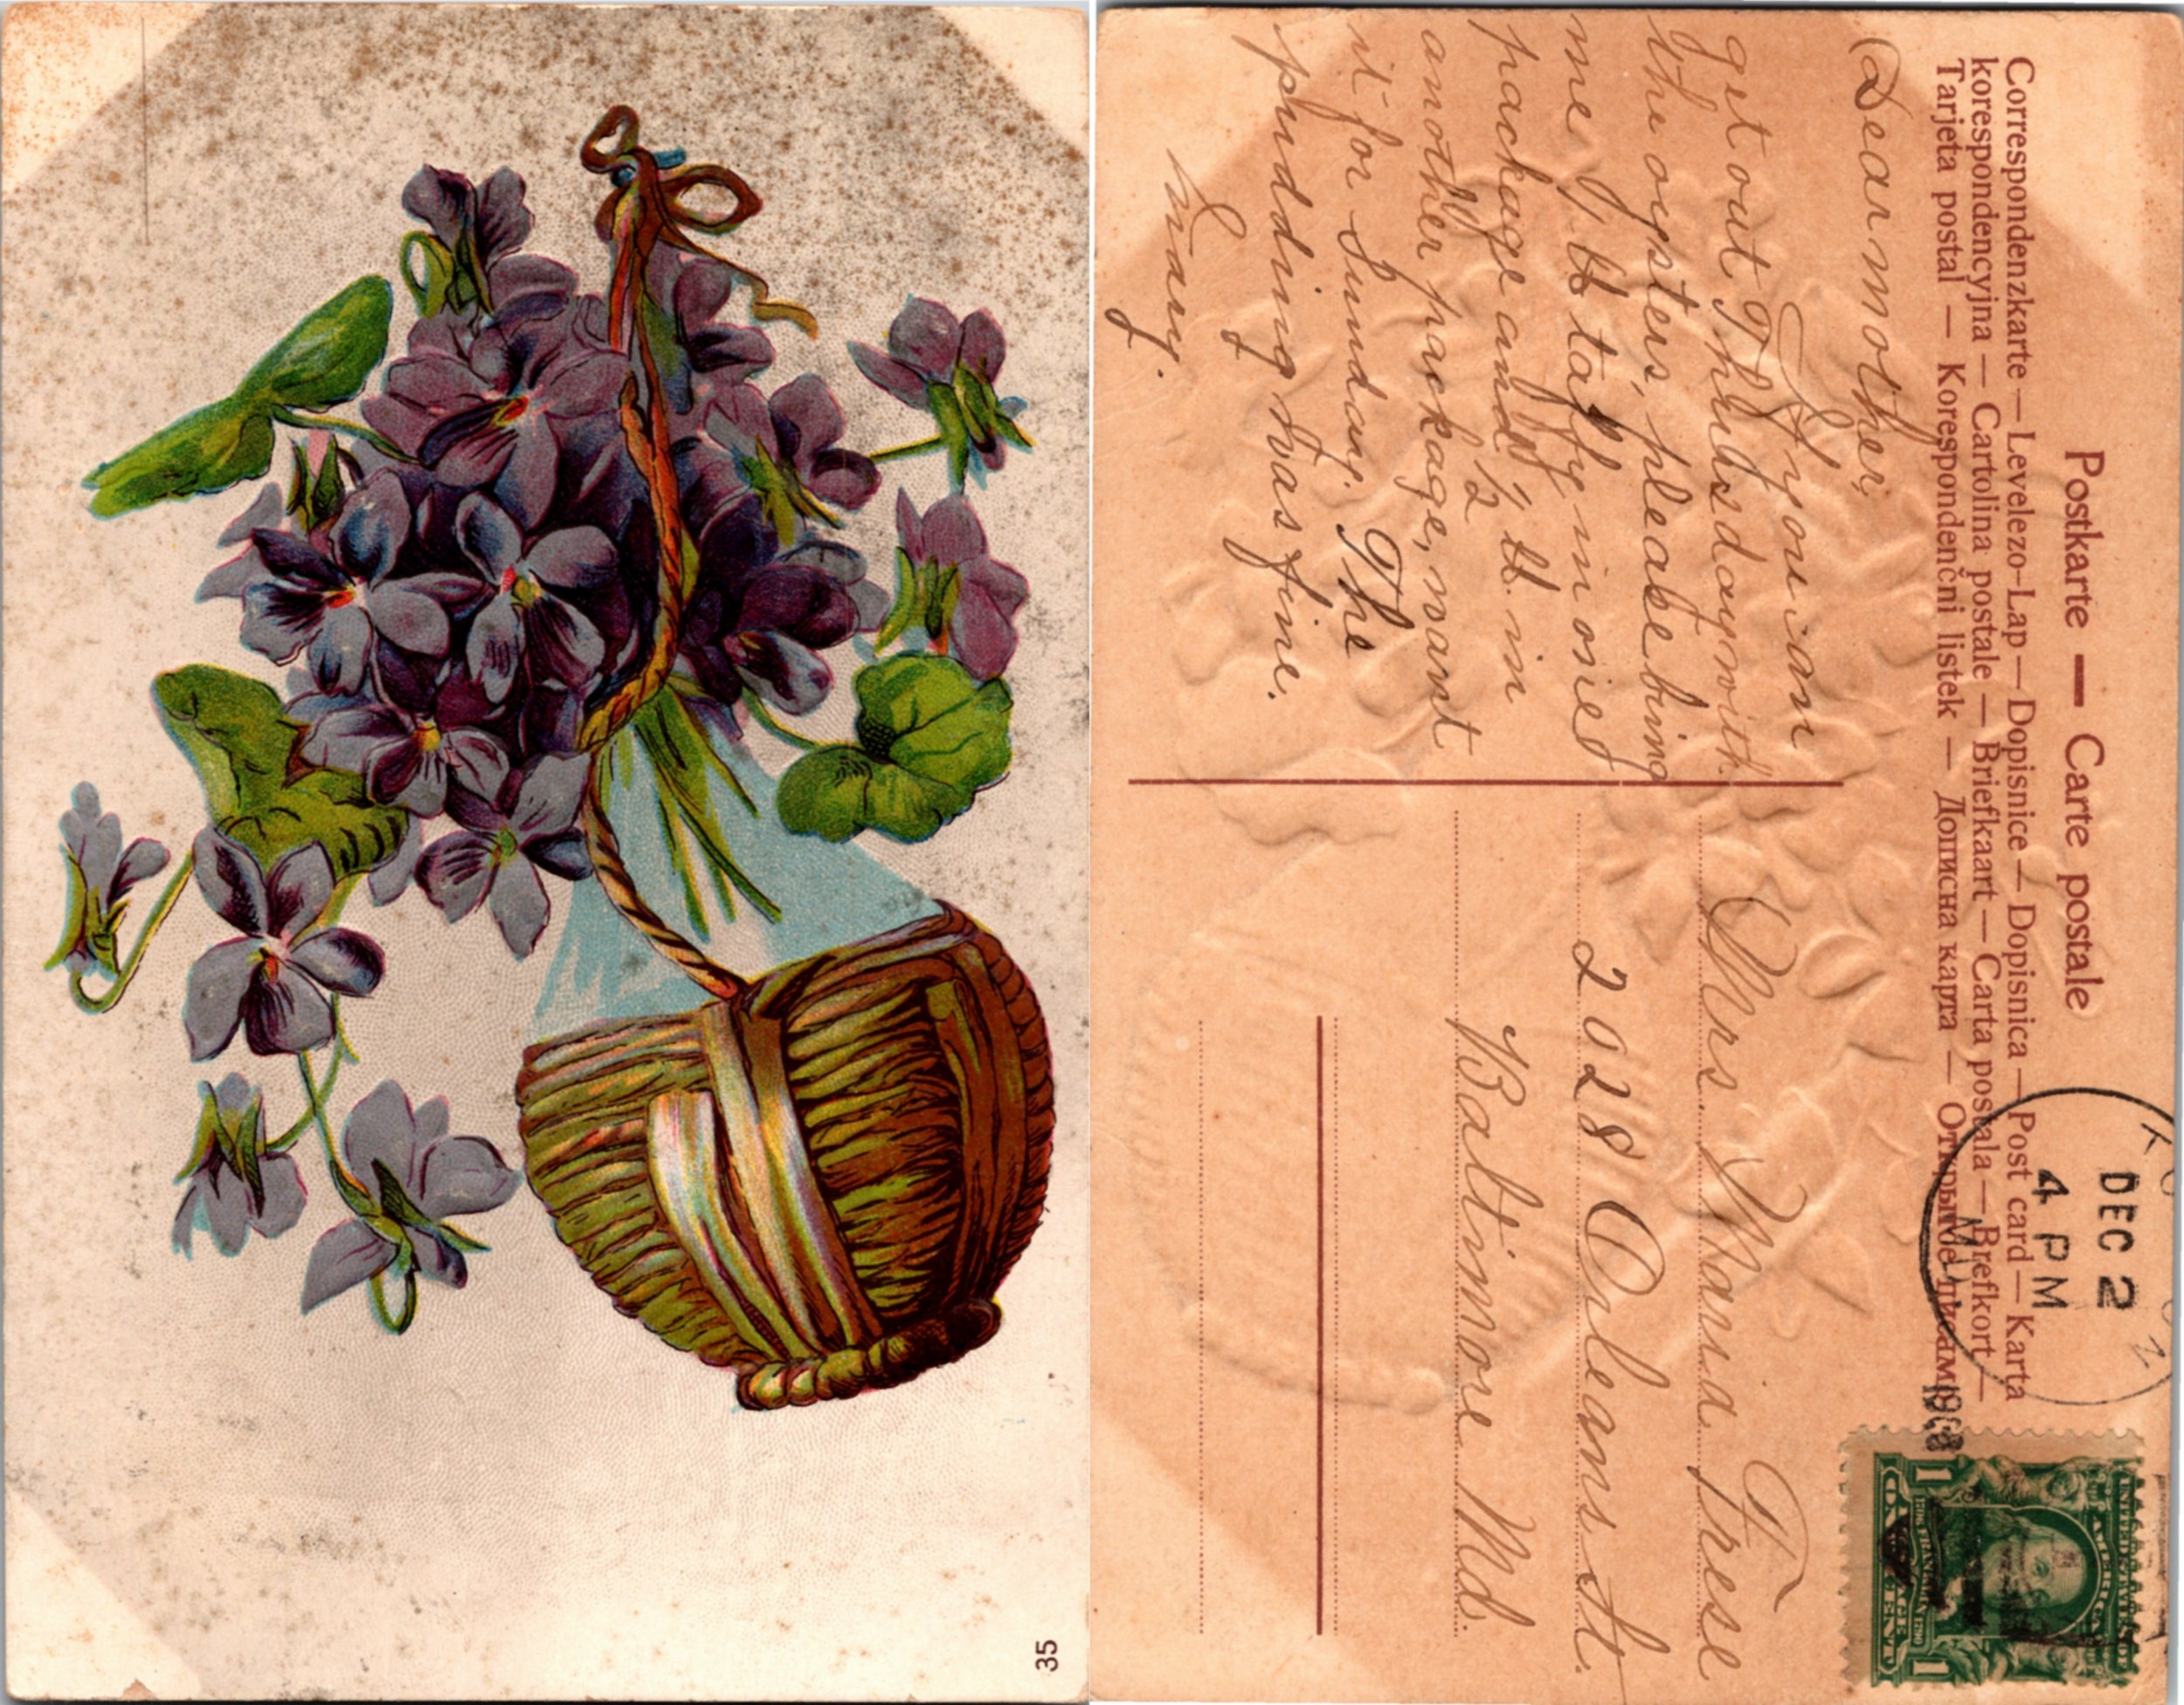 35
Postkarte — Carte postale
Correspondenzkarte — Levelezo-Lap — Dopisnice — Dopisnica — Post card — Karta
korespondencyjna — Cartolina postale — Briefkaart — Carta postala — Brefkort —
Tarjeta postal — Korespondenčni listek — Дописна карта — Открытые письма
DEC 2
4 PM
1908
Dear mother,
If you can
get out Thursday with
the oysters, please bring
me ½ lb taffy in one
package and ½ lb. in
another package, want
it for Sunday. The
pudding was fine.
May.
Mrs. Maria Frese
2028 Orleans St.
Baltimore Md.
UNITED STATES
OF AMERICA
1 ONE CENT 1